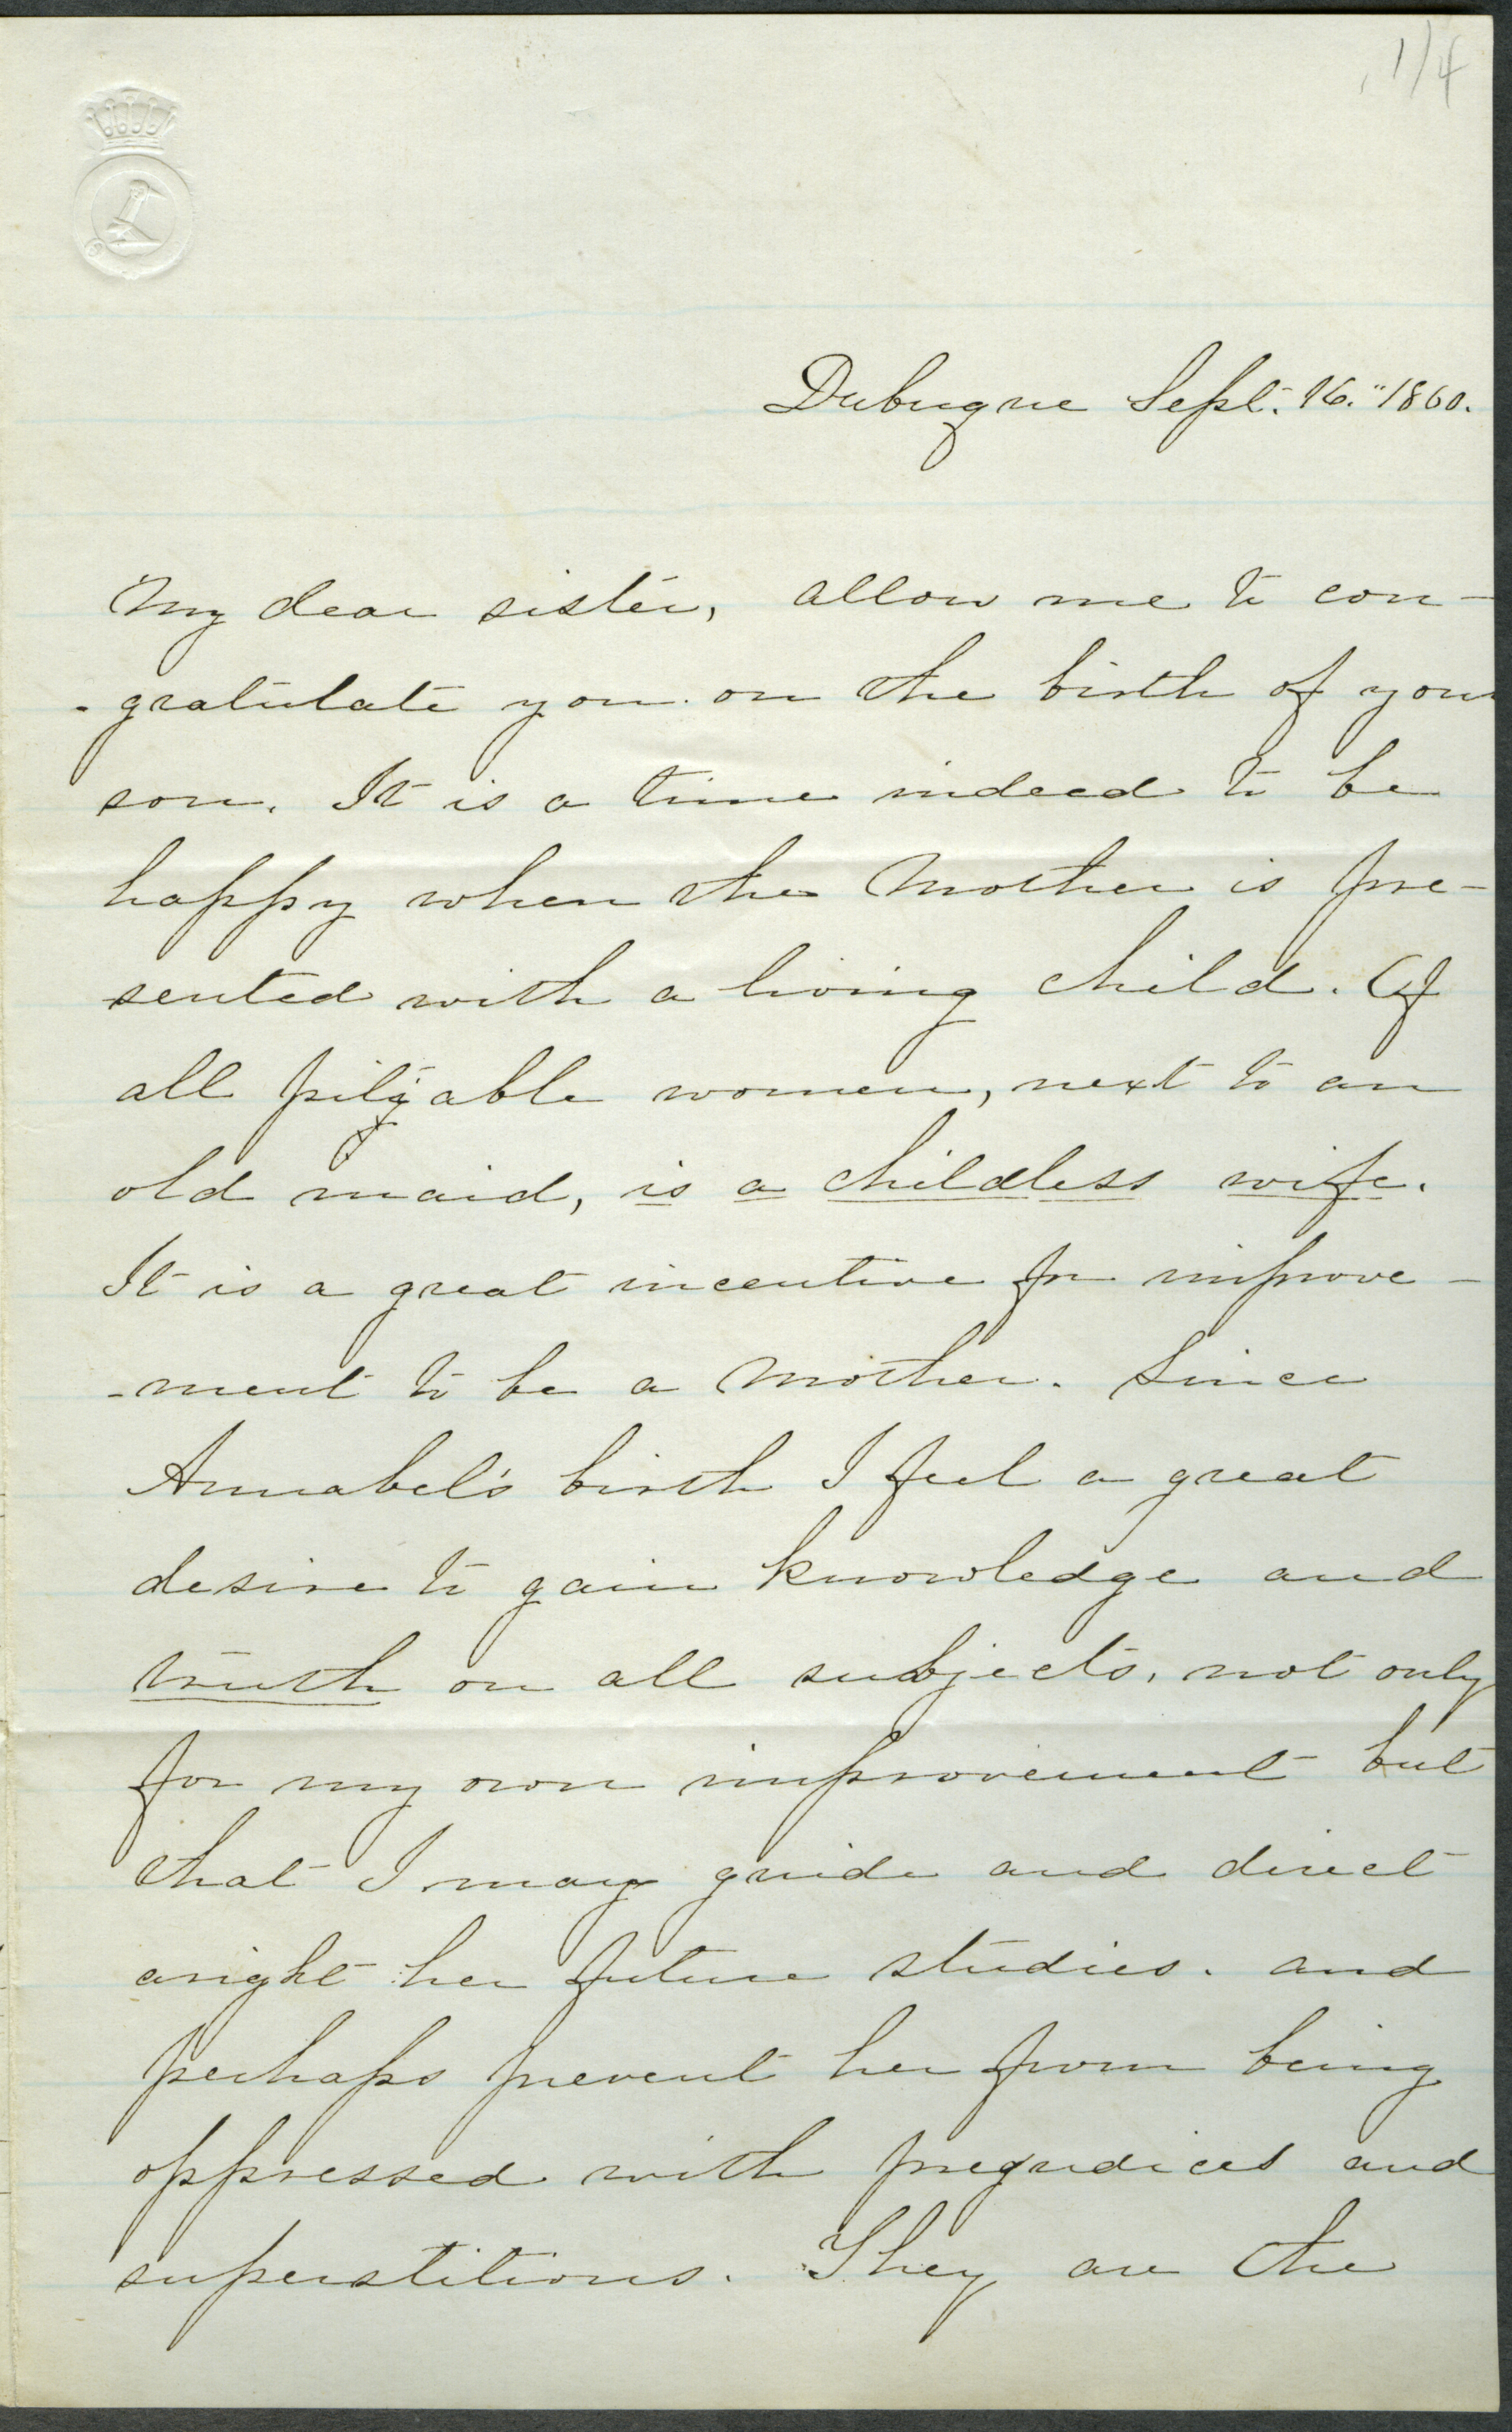 1/4
Dubuque Sept. 16." 1860.
My dear sister, allow me to con-
-gratulate you on the birth of your
son. It is a time indeed to be
happy when the Mother is pre-
sented with a living child. Of
all pityable women, next to an
old maid, is a childless wife.
It is a great incentive for improve-
-ment to be a Mother. Since
Annabel's birth I feel a great
desire to gain knowledge and
truth on all subjects, not only
for my own improvement but
that I may guide and direct
aright her future studies. and
perhaps prevent her from being
oppressed with pregudices and
superstitions. They are the